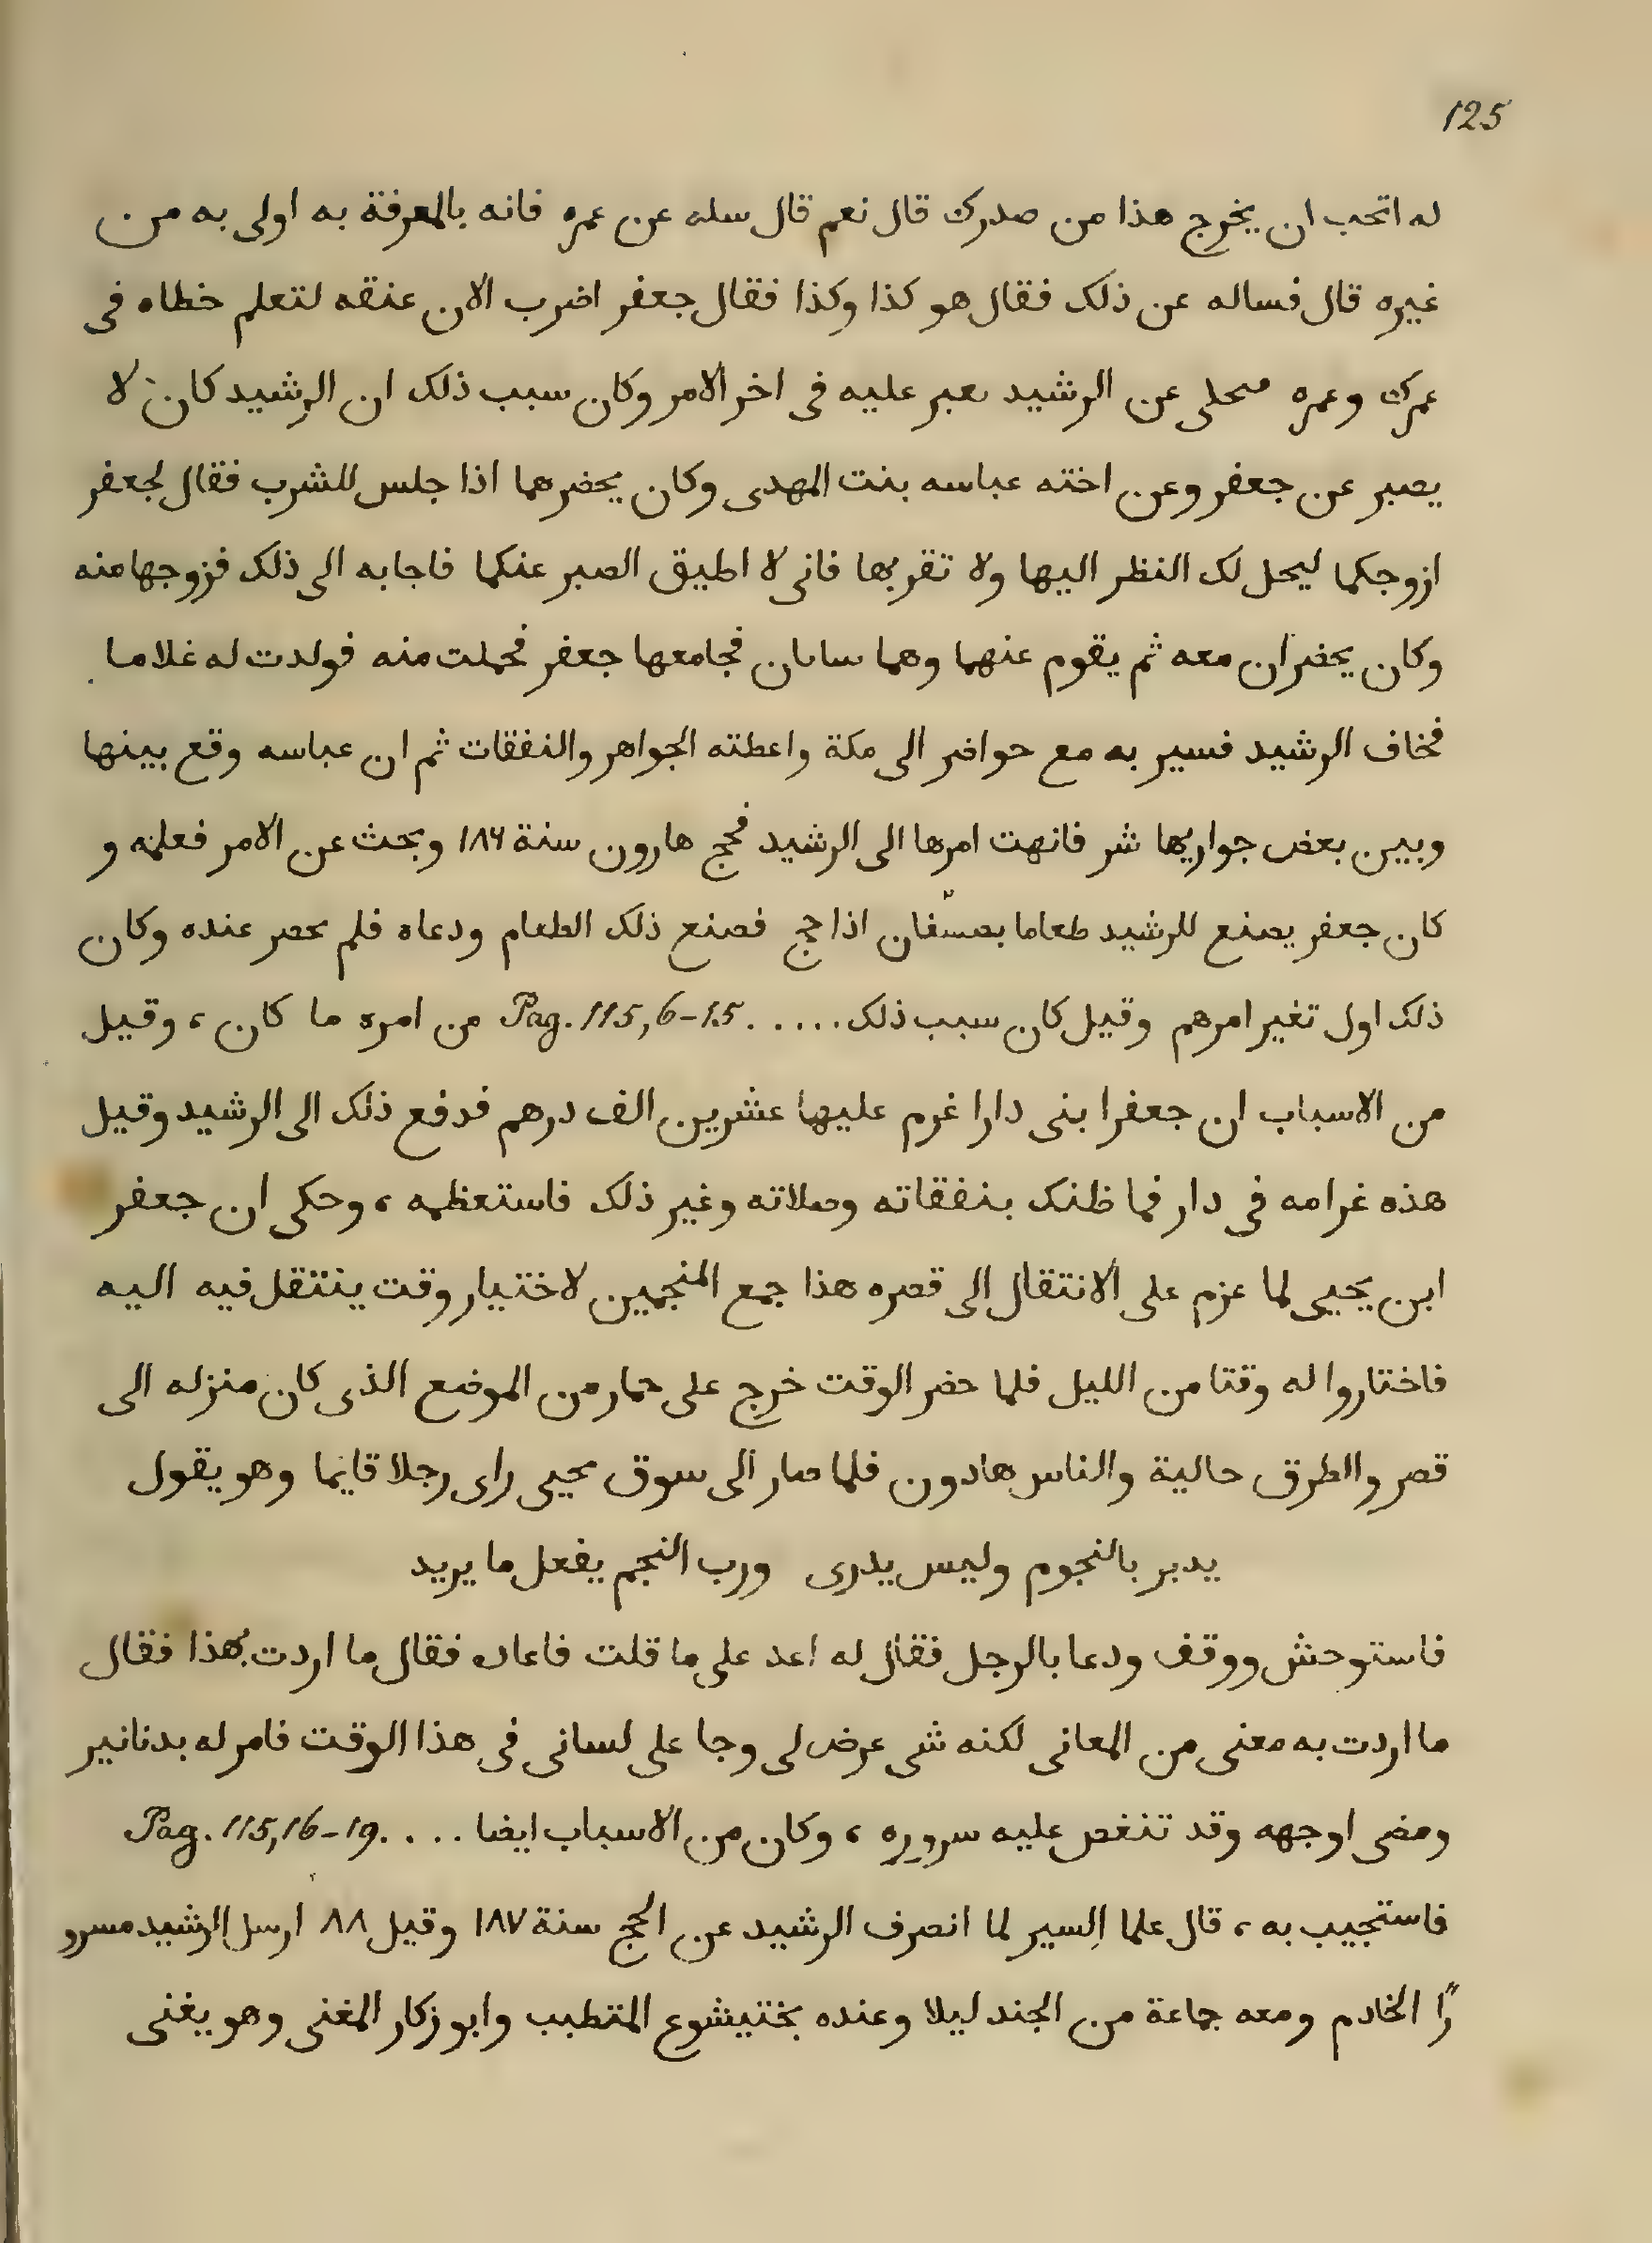 125
له اتحب ان يخرج هذا من صدرك قال نعم قال سله عن عمره فانه بالمعرفة به اولى به من
غيره قال فساله عن ذلك فقال هو كذا وكذا فقال جعفر اضرب الان عنقه لتعلم خطاه فى
عمرك وعمره عن الرشيد عليه فى اخر الامر وكان سبب ذلك ان الرشيد كان لا
يصبر عن جعفر وعن اخته عباسه بنت المهدى وكان يحضرهما اذا جلس للشرب فقال لجعفر
ازوجكما ليحل لك النظر اليها ولا تقربها فانى لا اطيق الصبر عنكما فاجابه الى ذلك فزوجها منه
وكان يحضران معه ثم يقوم عنهما وهما فجامعها جعفر فحملت منه فولدت له غلاما
فخاف الرشيد فسير به مع حواضر الى مكة واعطته الجواهر والنفقات ثم ان عباسه وقع بينها
وبين بعض جواريها شر فانهت امرها الى الرشيد فحج هارون سنة ١٨٦ وبحث عن الامر فعلمه و
كان جعفر يصنع للرشيد طعاما بعسفان اذا حج فصنع ذلك الطعام ودعاه فلم يحضر عنده وكان
ذلك اول تغير امرهم وقيل كان سبب ذلك ..... Pag. 115, 6-15 من امره ما كان ، وقيل
من الاسباب ان جعفرا بنى دارا غرم عليها عشرين الف درهم فدفع ذلك الى الرشيد وقيل
هذه غرامه فى دار فما ظنك بنفقاته وصلاته وغير ذلك فاستعظمه ، وحكى ان جعفر
ابن يحيى لما عزم على الانتقال الى قصره هذا جمع المنجمين لاختيار وقت ينتقل فيه اليه
فاختاروا له وقتا من الليل فلما حضر الوقت خرج على حمار من الموضع الذى كان منزله الى
قصر والطرق حالية والناس هادون فلما صار الى سوق يحيى راى رجلا قايما وهو يقول
يدبر بالنجوم وليس يدرى ورب النجم يفعل ما يريد
فاستوحش ووقف ودعا بالرجل فقال له اعد على ما قلت فاعاده فقال ما اردت بهذا فقال
ما اردت به معنى من المعانى لكنه شى عرض لى وجا على لسانى فى هذا الوقت فامر له بدنانير
ومضى اوجهه وقد تنغص عليه سروره ، وكان من الاسباب ايضا .... Pag. 115, 16-19
فاستجيب به ، قال علما السير لما انصرف الرشيد عن الحج سنة ١٨٧ وقيل ٨٨ ارسل الرشيد مسرو
رًا الخادم ومعه جماعة من الجند ليلا وعنده بختيشوع المتطبب وابو زكار المغنى وهو يغنى